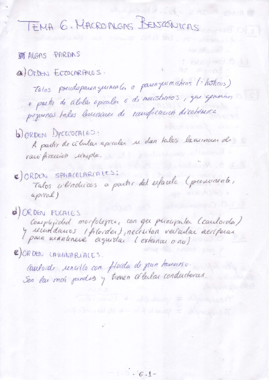 TEMA 6. MACROALGAS BENTÓNICAS
ALGAS PARDAS
a) ORDEN ECTOCARIALES.
Talos pseudoparenquimático o parenquimático
a partir de células apicales o de meristemos, que generan
pequeños talos laminares de ramificación dicótoma
b) ORDEN DYCTIOTALES.
A partir de células apicales se dan talos laminares de
ramificación simple.
c) ORDEN SPHACELARIALES:
Talos cilíndricos a partir del
apical)
d) ORDEN FUCALES
Complejidad morfológica, con ejes principales (cauloides)
y secundarios (filoides), necesitan vesículas aeríferas
para mantenerse erguidas
e) ORDEN LAMINARIALES.
sencillo con filoide de gran tamaño
Son las más grandes y tienen células conductoras.
-6.1-